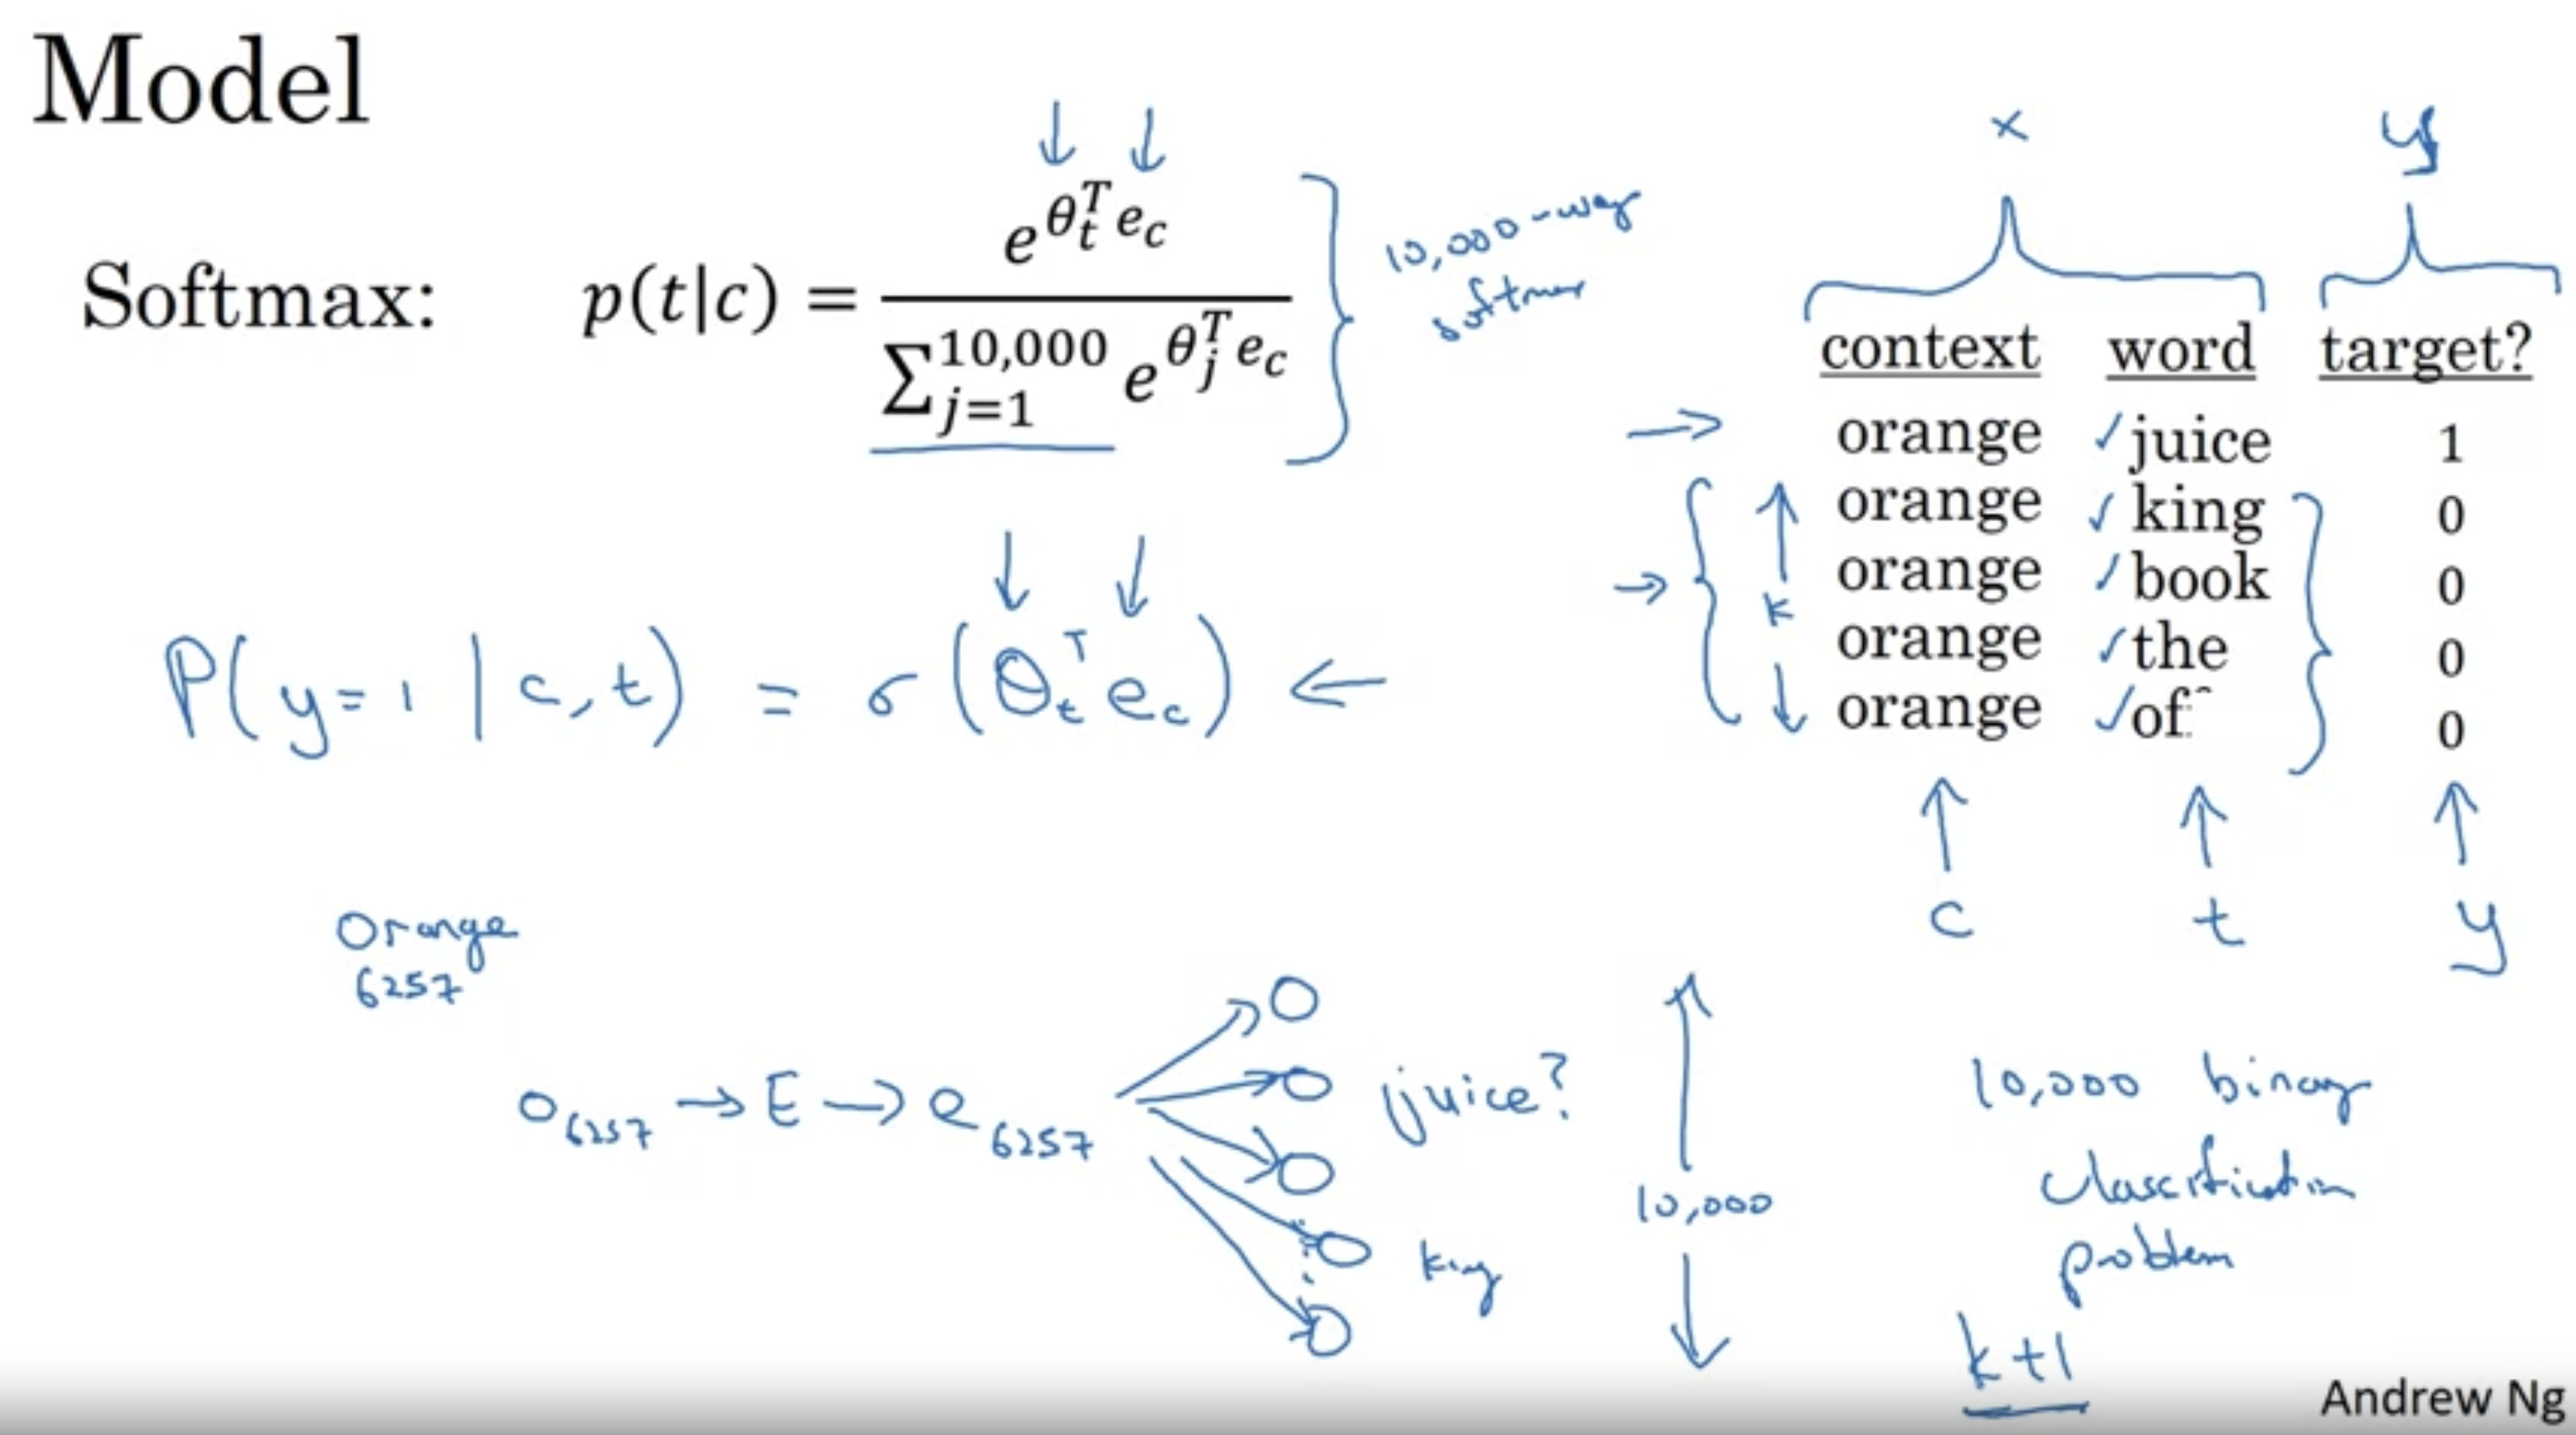 Model
Softmax: p(t|c) = e^{θ_t^T e_c} / ∑_{j=1}^{10,000} e^{θ_j^T e_c}
10,000-way
softmax
x y
context word target?
orange juice 1
orange king 0
orange book 0
orange the 0
orange of 0
k
c t y
P(y=1 | c, t) = σ(θ_t^T e_c) ←
Orange
6257
o_6257 → E → e_6257
juice?
king
10,000
10,000 binary
classification
problem
k+1
Andrew Ng